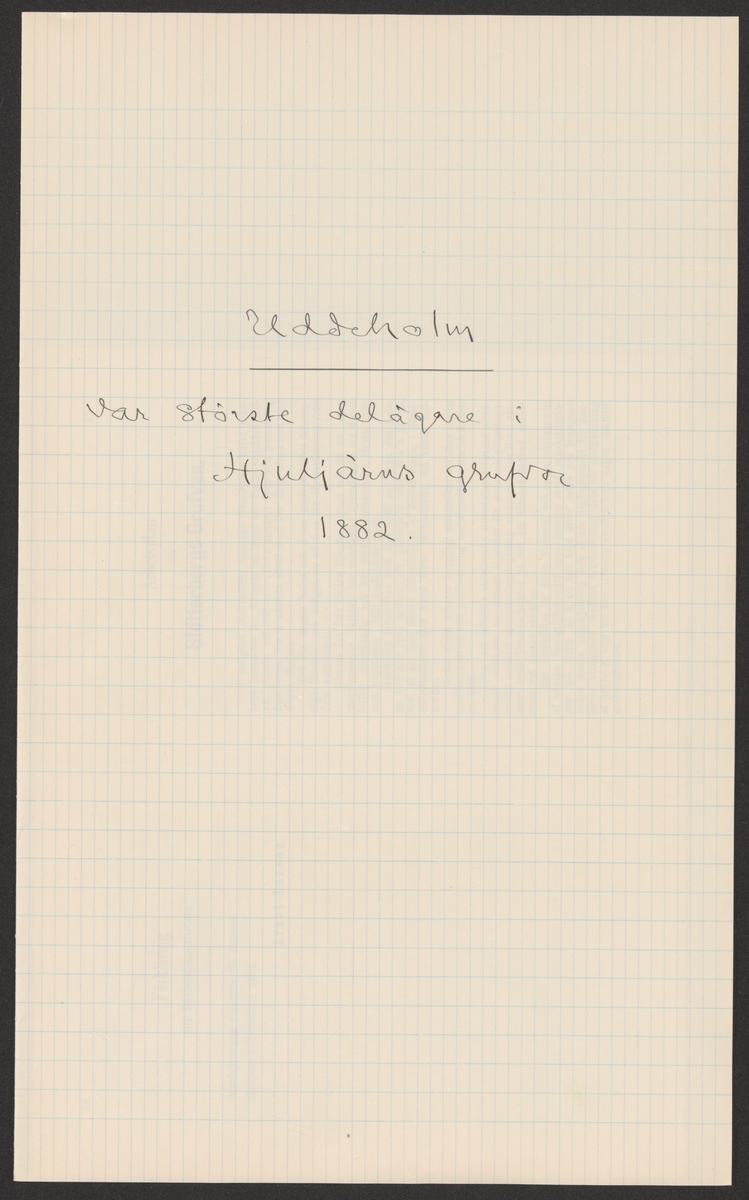 Uddeholm
var störste delägare i
Hjultjärns grufvor
1882.